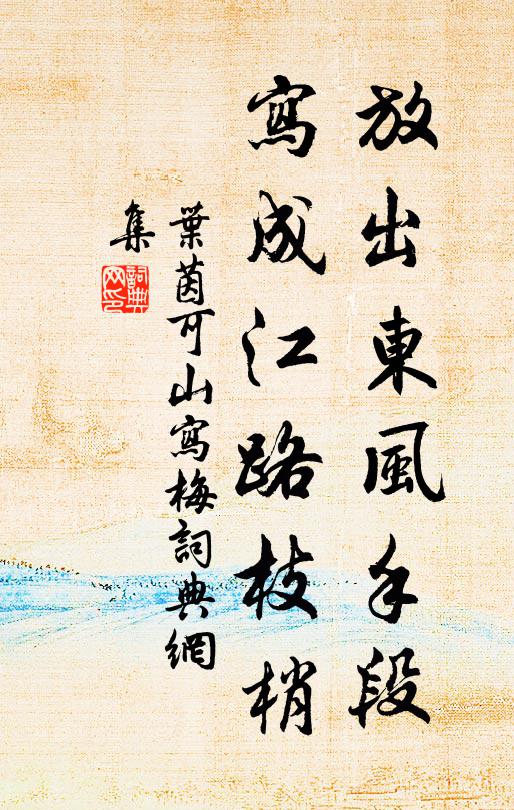 放出東風手段
寫成江路枝梢
葉茵可山寫梅詞典網
集
詞典
网印